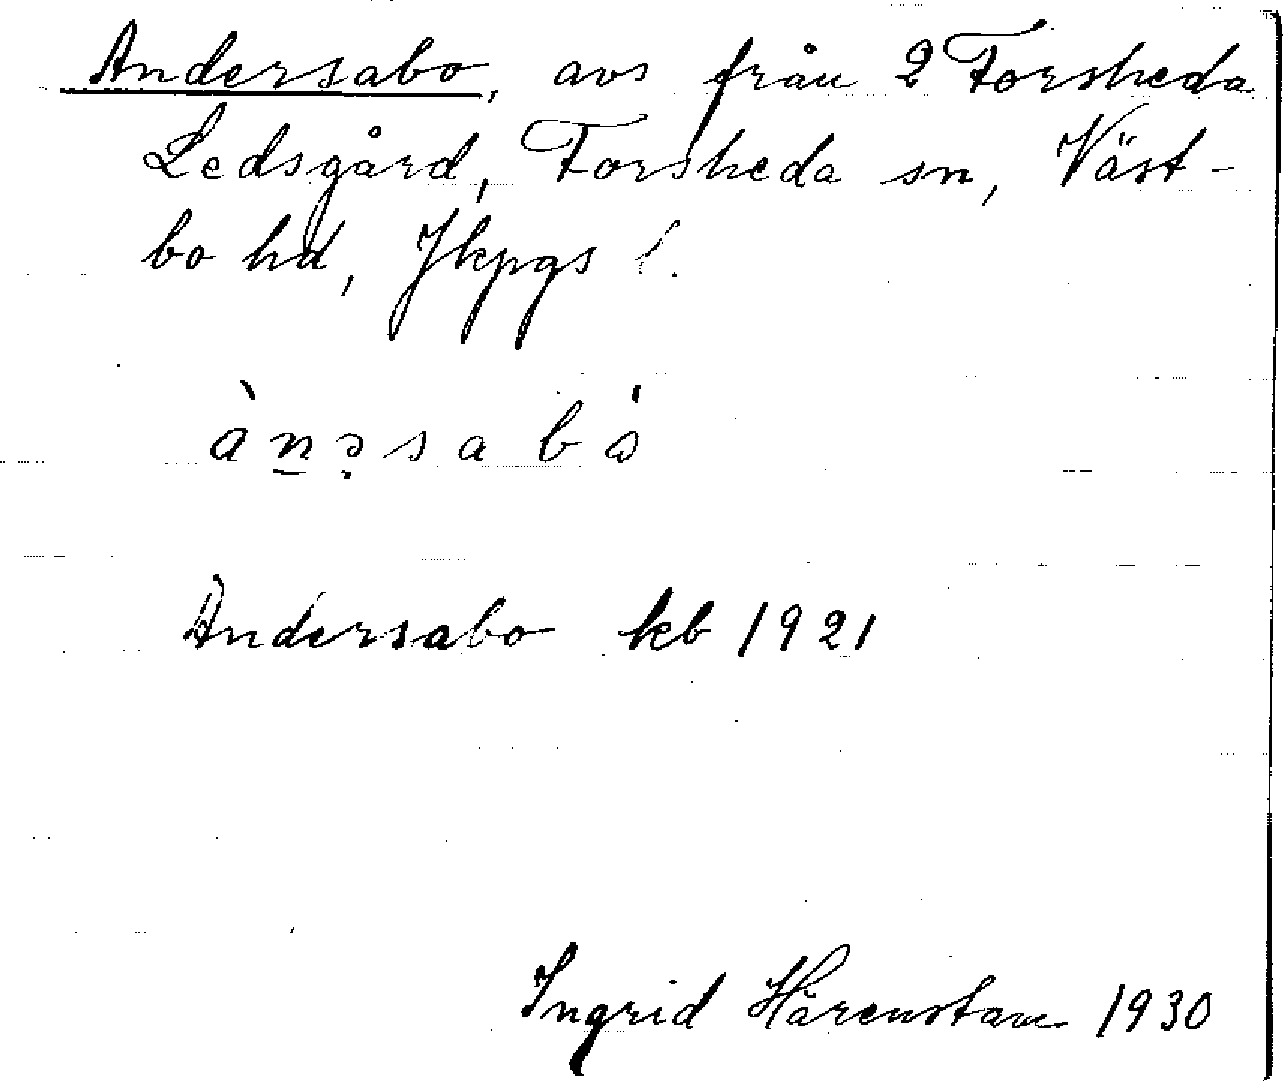 Andersabo, avs från 2 Forsheda
Ledsgård, Forsheda sn, Väst-
bo hd, Jkpgs l.
Andersabo kb 1921
Ingrid Härenstam 1930